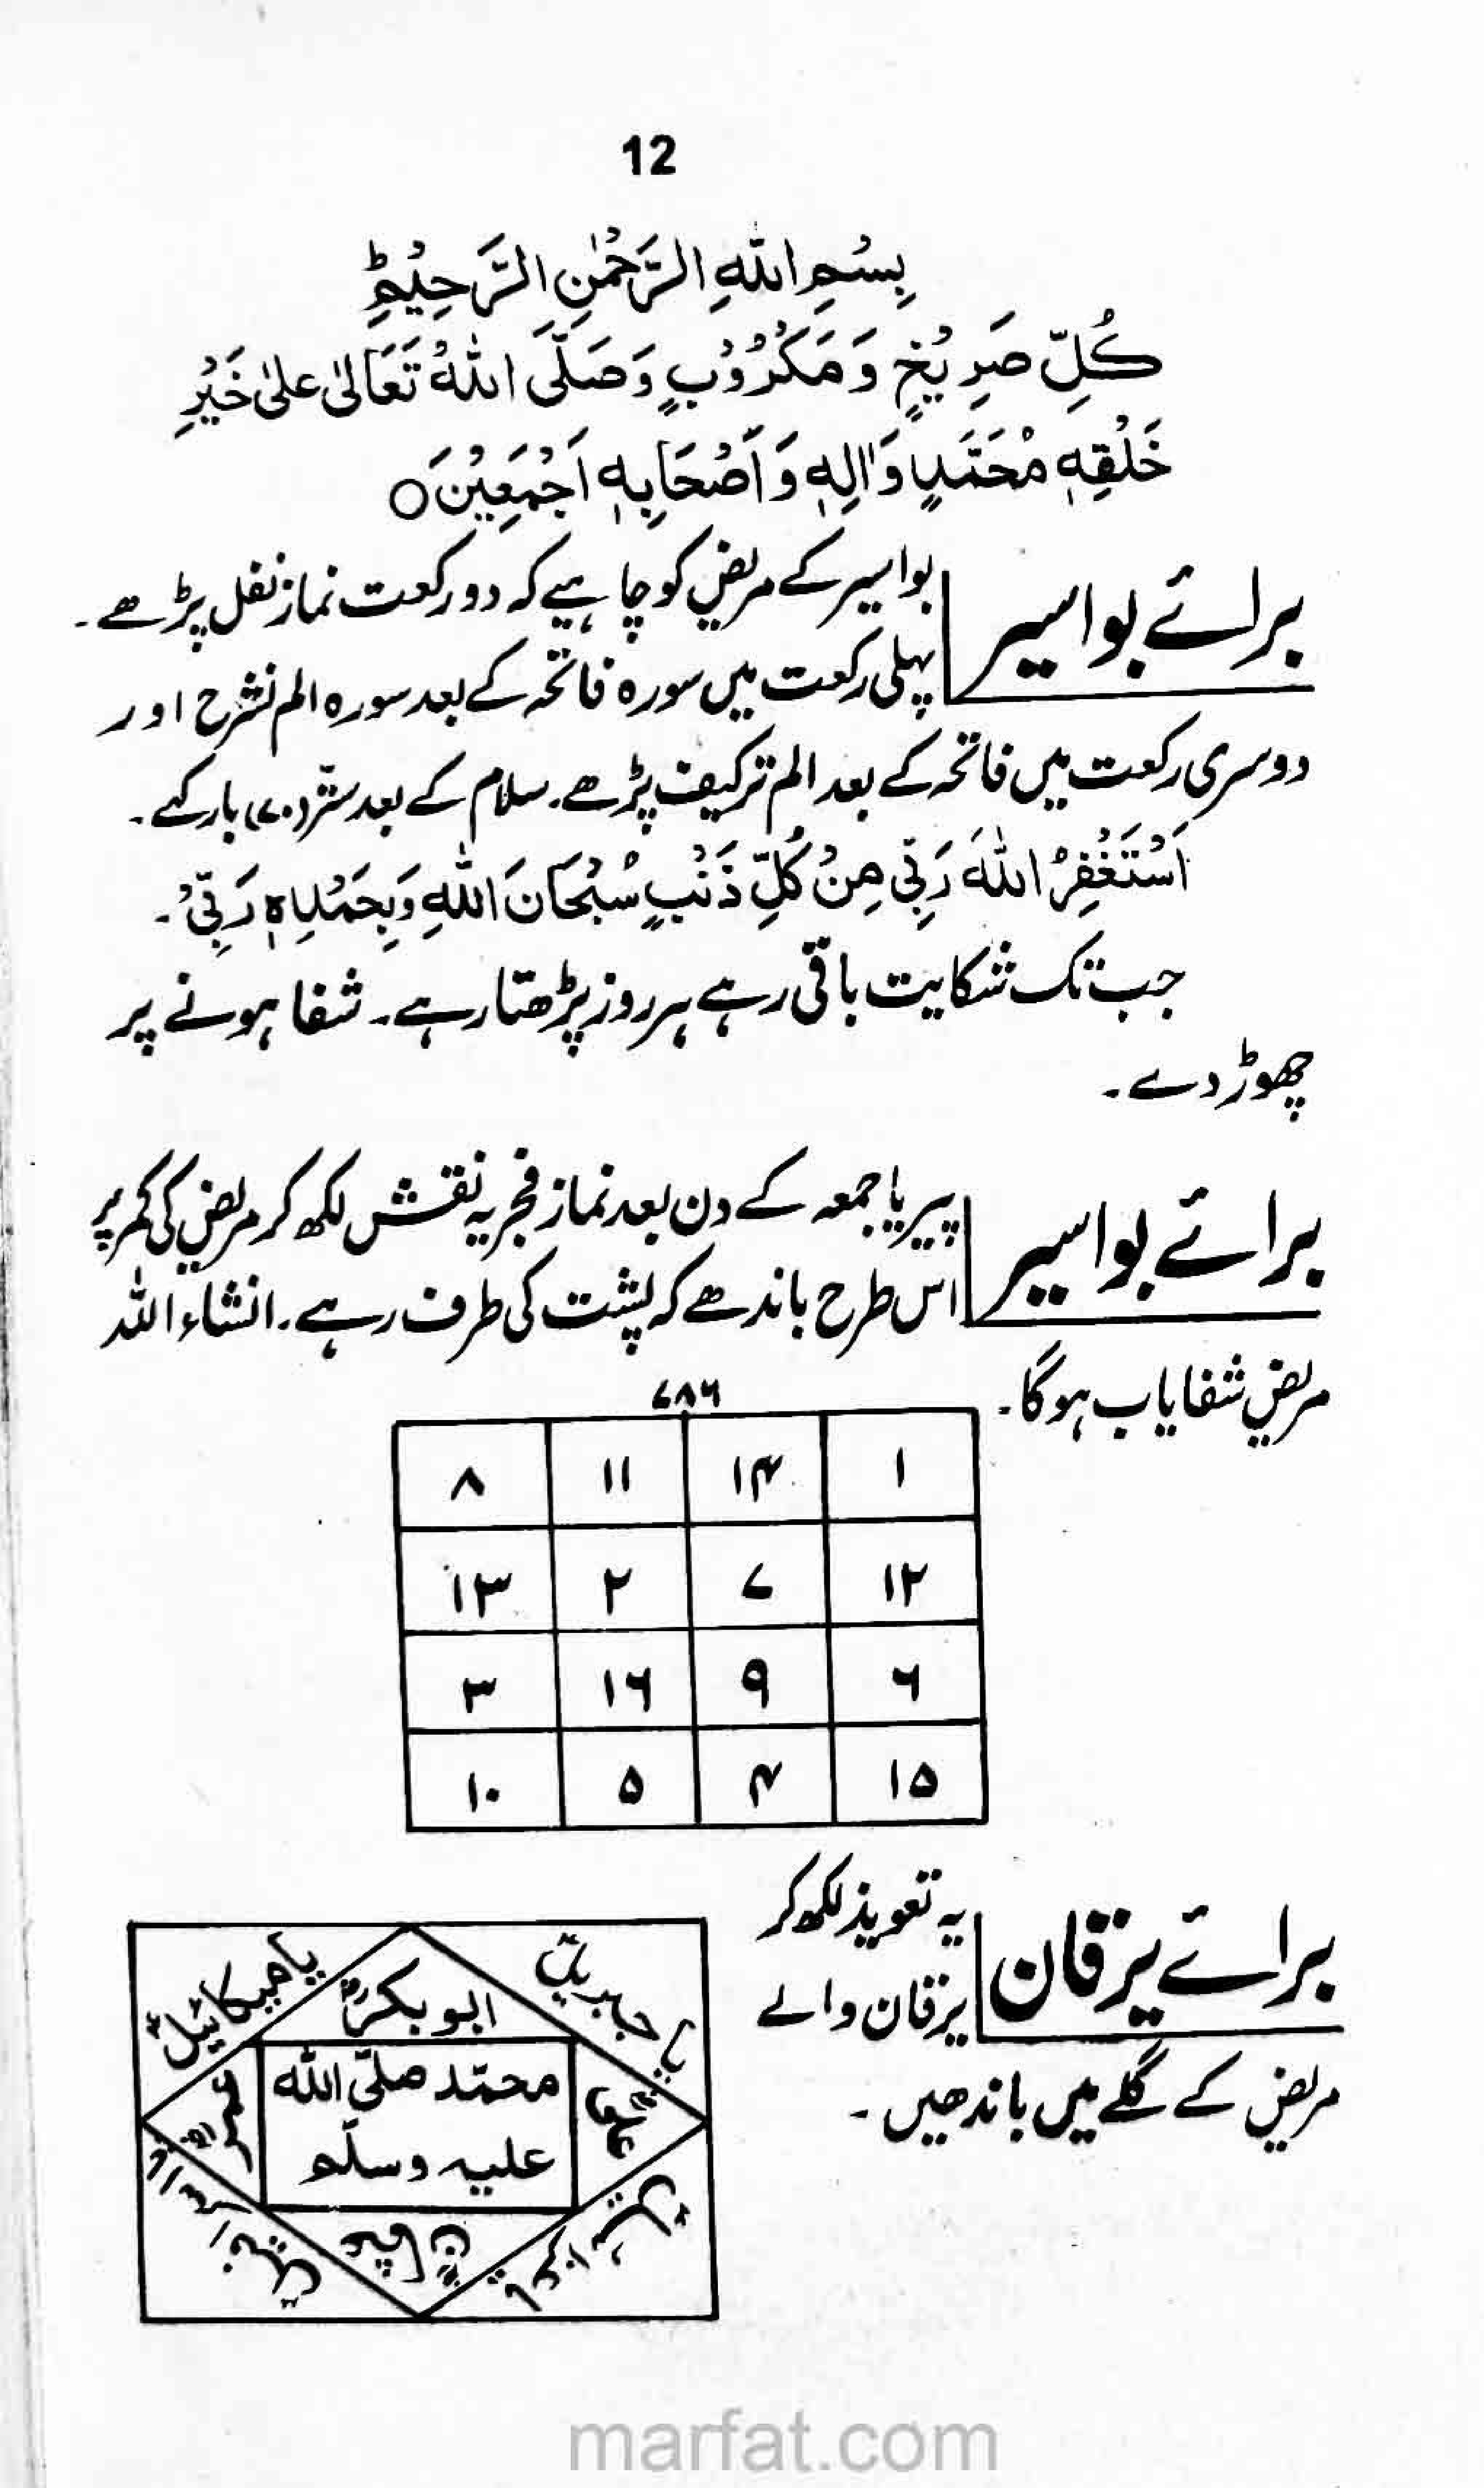 12
بِسْمِ اللهِ الرَّحْمٰنِ الرَّحِيْمِ ط
كُلِّ صَرِيْخٍ وَمَكْرُوْبٍ وَصَلَّى اللهُ تَعَالىٰ عَلىٰ خَيْرِ
خَلْقِهٖ مُحَمَّدٍ وَاٰلِهٖ وَاَصْحَابِهٖ اَجْمَعِيْنَ ○
برائے بواسیر
بواسیر کے مریض کو چاہیے کہ دو رکعت نماز نفل پڑھے۔
پہلی رکعت میں سورہ فاتحہ کے بعد سورہ الم نشرح اور
دوسری رکعت میں فاتحہ کے بعد الم ترکیف پڑھے۔ سلام کے بعد ستّر (۷۰) بار کہے۔
اَسْتَغْفِرُ اللهَ رَبِّيْ مِنْ كُلِّ ذَنْبٍ سُبْحَانَ اللهِ وَبِحَمْدِهٖ رَبِّيْ۔
جب تک شکایت باقی رہے ہر روز پڑھتا رہے۔ شفا ہونے پر
چھوڑ دے۔
برائے بواسیر
پیر یا جمعہ کے دن بعد نماز فجر یہ نقش لکھ کر مریض کی کمر پر
اس طرح باندھے کہ پشت کی طرف رہے۔ انشاء اللہ
مریض شفایاب ہوگا۔
۷۸۶
۱ ۱۴ ۱۱ ۸
۱۲ ۷ ۲ ۱۳
۶ ۹ ۱۶ ۳
۱۵ ۴ ۵ ۱۰
برائے یرقان
یہ تعویذ لکھ کر
یرقان والے
مریض کے گلے میں باندھیں۔
یا جبریلؑ
یا میکائیلؑ
ابو بکرؓ
عمرؓ
محمّد صلّی اللہ
علیہ وسلّم
علیؓ
marfat.com